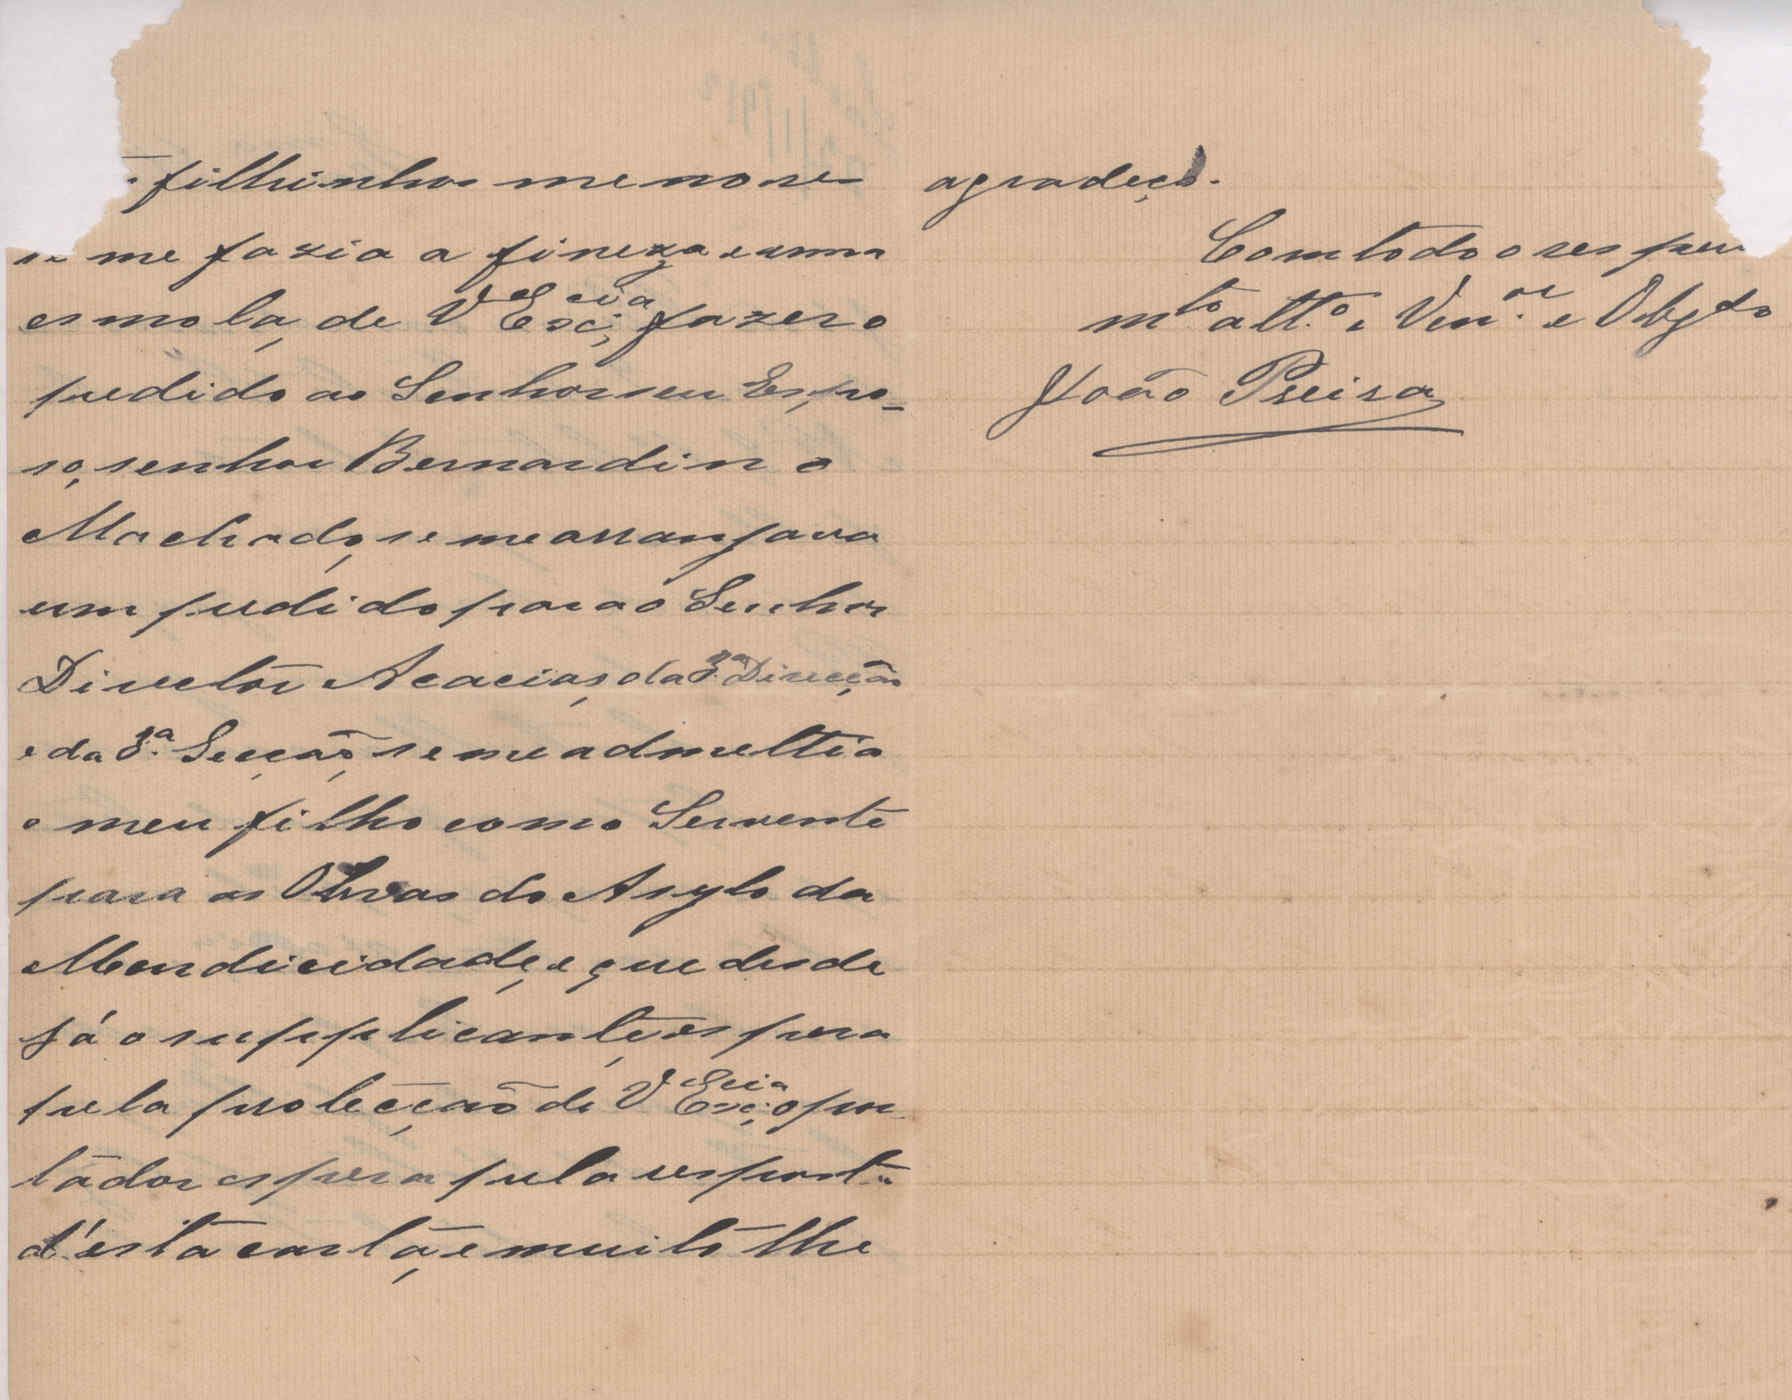 filhinhos menores
se me fazia a fineza e uma
esmola, de V Exci,ª fazer o
pedido ao Senhor seu Espo-
so, senhor Bernardino
Machado, se me arranjava
um pedido para o Senhor
Director Acacias, da 3.ª Direcção
e da 3.ª Secção, se me admettia
o meu filho como Servente
para as Obras do Asylo da
Mendicidade, e que desde
já o supplicante, espera
pela protecção de V Exci,ª o por
tador espera pela resposta
d'esta carta, e muito lhe
agradeço.
Com todo o respei
mto att.º e Ven.or e Obgdo
João Pereira